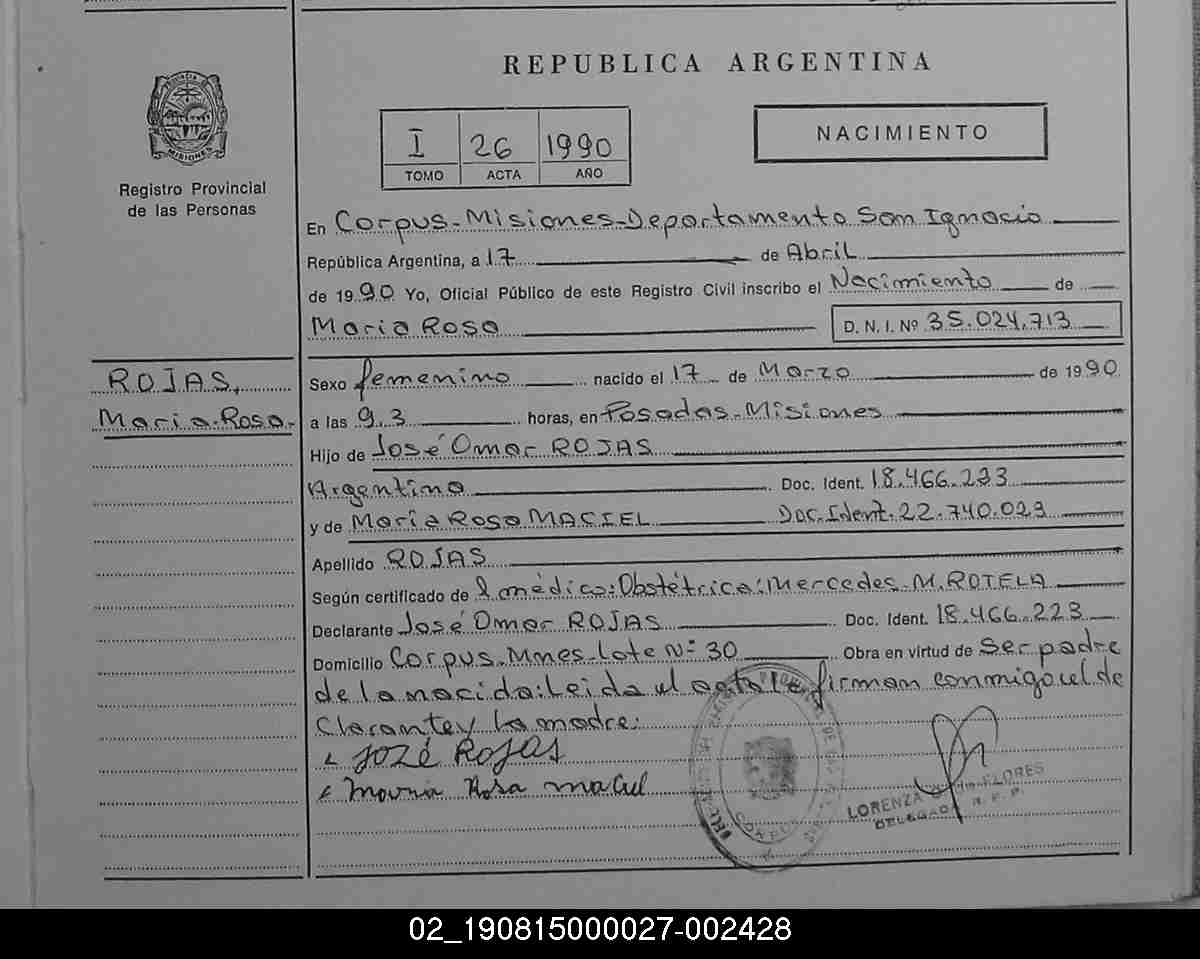 REPUBLICA ARGENTINA
PROVINCIA DE
MISIONES
Registro Provincial
de las Personas
I 26 1990
TOMO ACTA AÑO
NACIMIENTO
En Corpus-Misiones-Departamento San Ignacio
República Argentina, a 17 de Abril
de 1990 Yo, Oficial Público de este Registro Civil inscribo el Nacimiento de
Maria Rosa D. N. I. Nº 35.024.713
ROJAS,
Maria Rosa.
Sexo femenino nacido el 17 de Marzo de 1990
a las 9,3 horas, en Posadas-Misiones
Hijo de José Omar ROJAS
Argentino Doc. Ident. 18.466.223
y de Maria Rosa MACIEL Doc. Ident. 22.740.023
Apellido ROJAS
Según certificado de l médico: Obstétrica: Mercedes M. ROTELA
Declarante José Omar ROJAS Doc. Ident. 18.466.223
Domicilio Corpus. Mnes. Lote Nº 30 Obra en virtud de Ser padre
de la nacida: Leida el acta le firman conmigo el de
Clarante y la madre:
JOZÉ ROJAS
Maria Rosa Maciel
LORENZA FLORES
DELEGADA R. P. P.
CORPUS
02_190815000027-002428